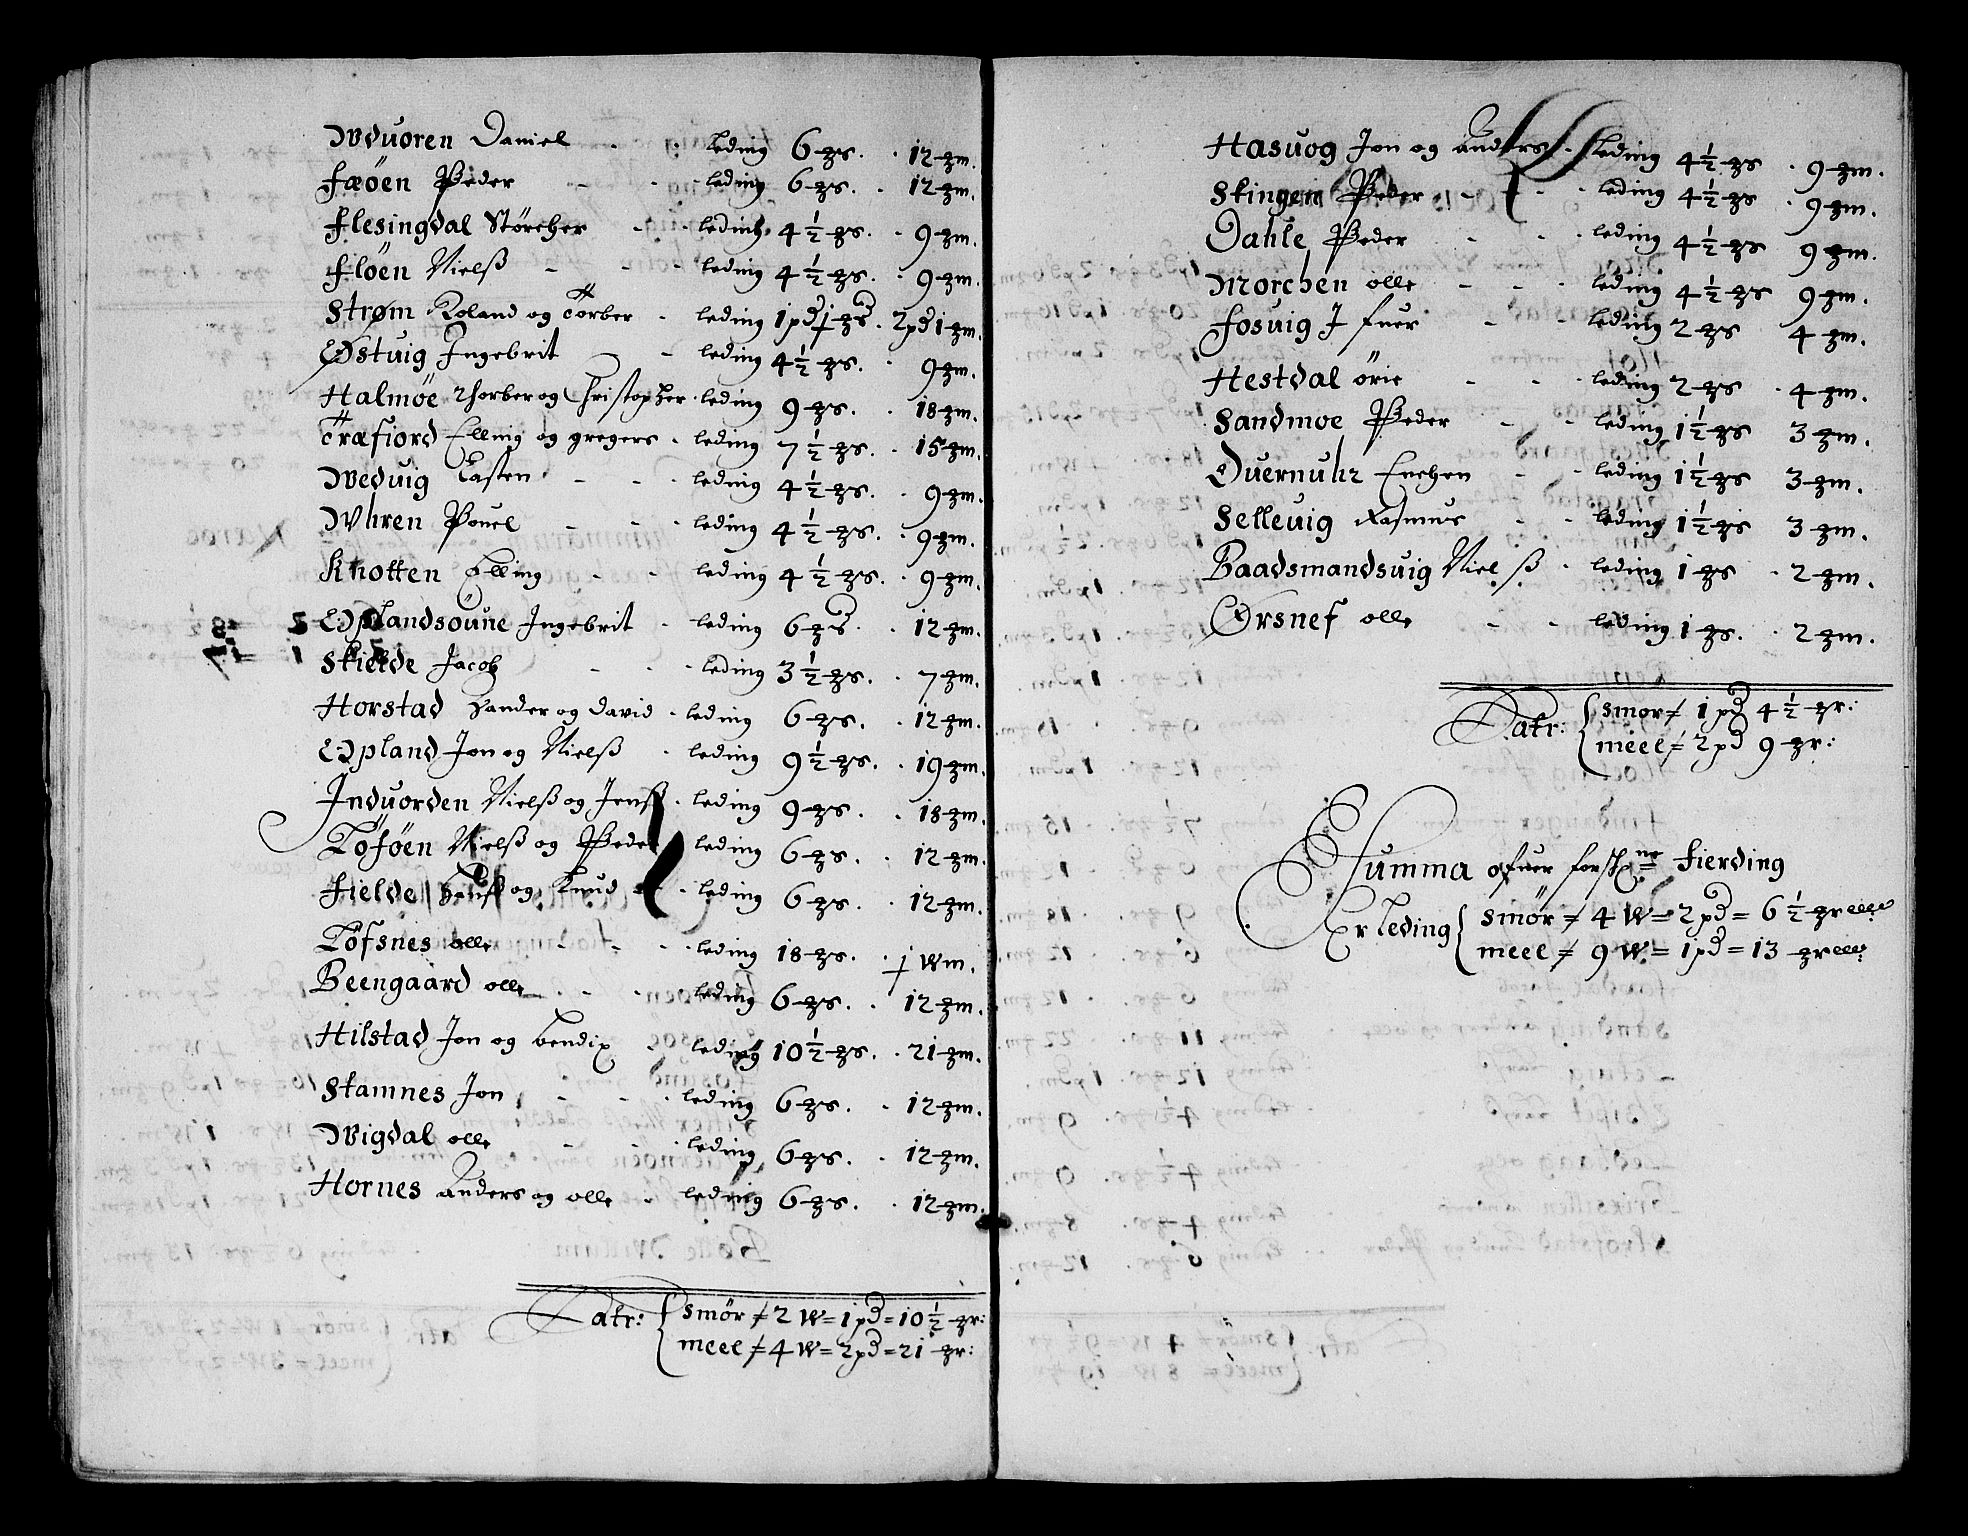 Wduoren Daniel - leding 6 gs. 12 gm.
Fæöen Peder - leding 6 gs. 12 gm.
Flesingdal Störcher - leding 4½ gs. 9 gm.
Flöen Nielß - leding 4½ gs. 9 gm.
Strøm Roland og Torber - leding 1 pd 1 gs. 2 pd 1 gm.
Østuig Ingebrit - leding 4½ gs. 9 gm.
Halmöe Thorber og Christopher leding 9 gs. 18 gm.
Træfiord Elling og gregers leding 7½ gs. 15 gm.
Weduig Casten - leding 4½ gs. 9 gm.
Whren Pouel - leding 4½ gs. 9 gm.
Knotten Elling - leding 4½ gs. 9 gm.
Oplandsöune Ingebrit leding 6 gs. 12 gm.
Skielde Jacob - leding 3½ gs. 7 gm.
Horstad Sander og David leding 6 gs. 12 gm.
Opland Jon og Nielß leding 9½ gs. 19 gm.
Induorden Nielß og Jenß leding 9 gs. 18 gm.
Töföen Nielß og Peder leding 6 gs. 12 gm.
Fielde Hanß og Knud leding 6 gs. 12 gm.
Töfsnes olle - leding 18 gs. 1 Wm.
Beengaard olle - leding 6 gs. 12 gm.
Hilstad Jon og bendix leding 10½ gs. 21 gm.
Stamnes Jon - leding 6 gs. 12 gm.
Wigdal olle - leding 6 gs. 12 gm.
Hornes Anders og olle leding 6 gs. 12 gm.
Latr: smör = 2 W = 1 pd = 10½ gr:
meel = 4 W = 2 pd = 21 gr:
Hasuog Jon og Anders leding 4½ gs. 9 gm.
Stingen Peder - leding 4½ gs. 9 gm.
Dahle Peder - leding 4½ gs 9 gm.
Morchen olle - leding 4½ gs 9 gm.
Fosuig Ifuer - leding 2 gs 4 gm.
Hestdal örie - leding 2 gs 4 gm.
Sandmoe Peder - leding 1½ gs 3 gm.
Quernuhr Erichen - leding 1½ gs 3 gm.
Selleuig Rasmus - leding 1½ gs 3 gm.
Baadsmandsuig Nielß leding 1 gs 2 gm.
Ørsnef olle - leding 1 gs. 2 gm.
Latr: smør = 1 pd 4½ gr:
meel = 2 pd 9 gr:
Summa ofuer forschne fierding
Er leding smör = 4 W = 2 pd = 6½ gr
meel = 9 W = 1 pd = 13 gr